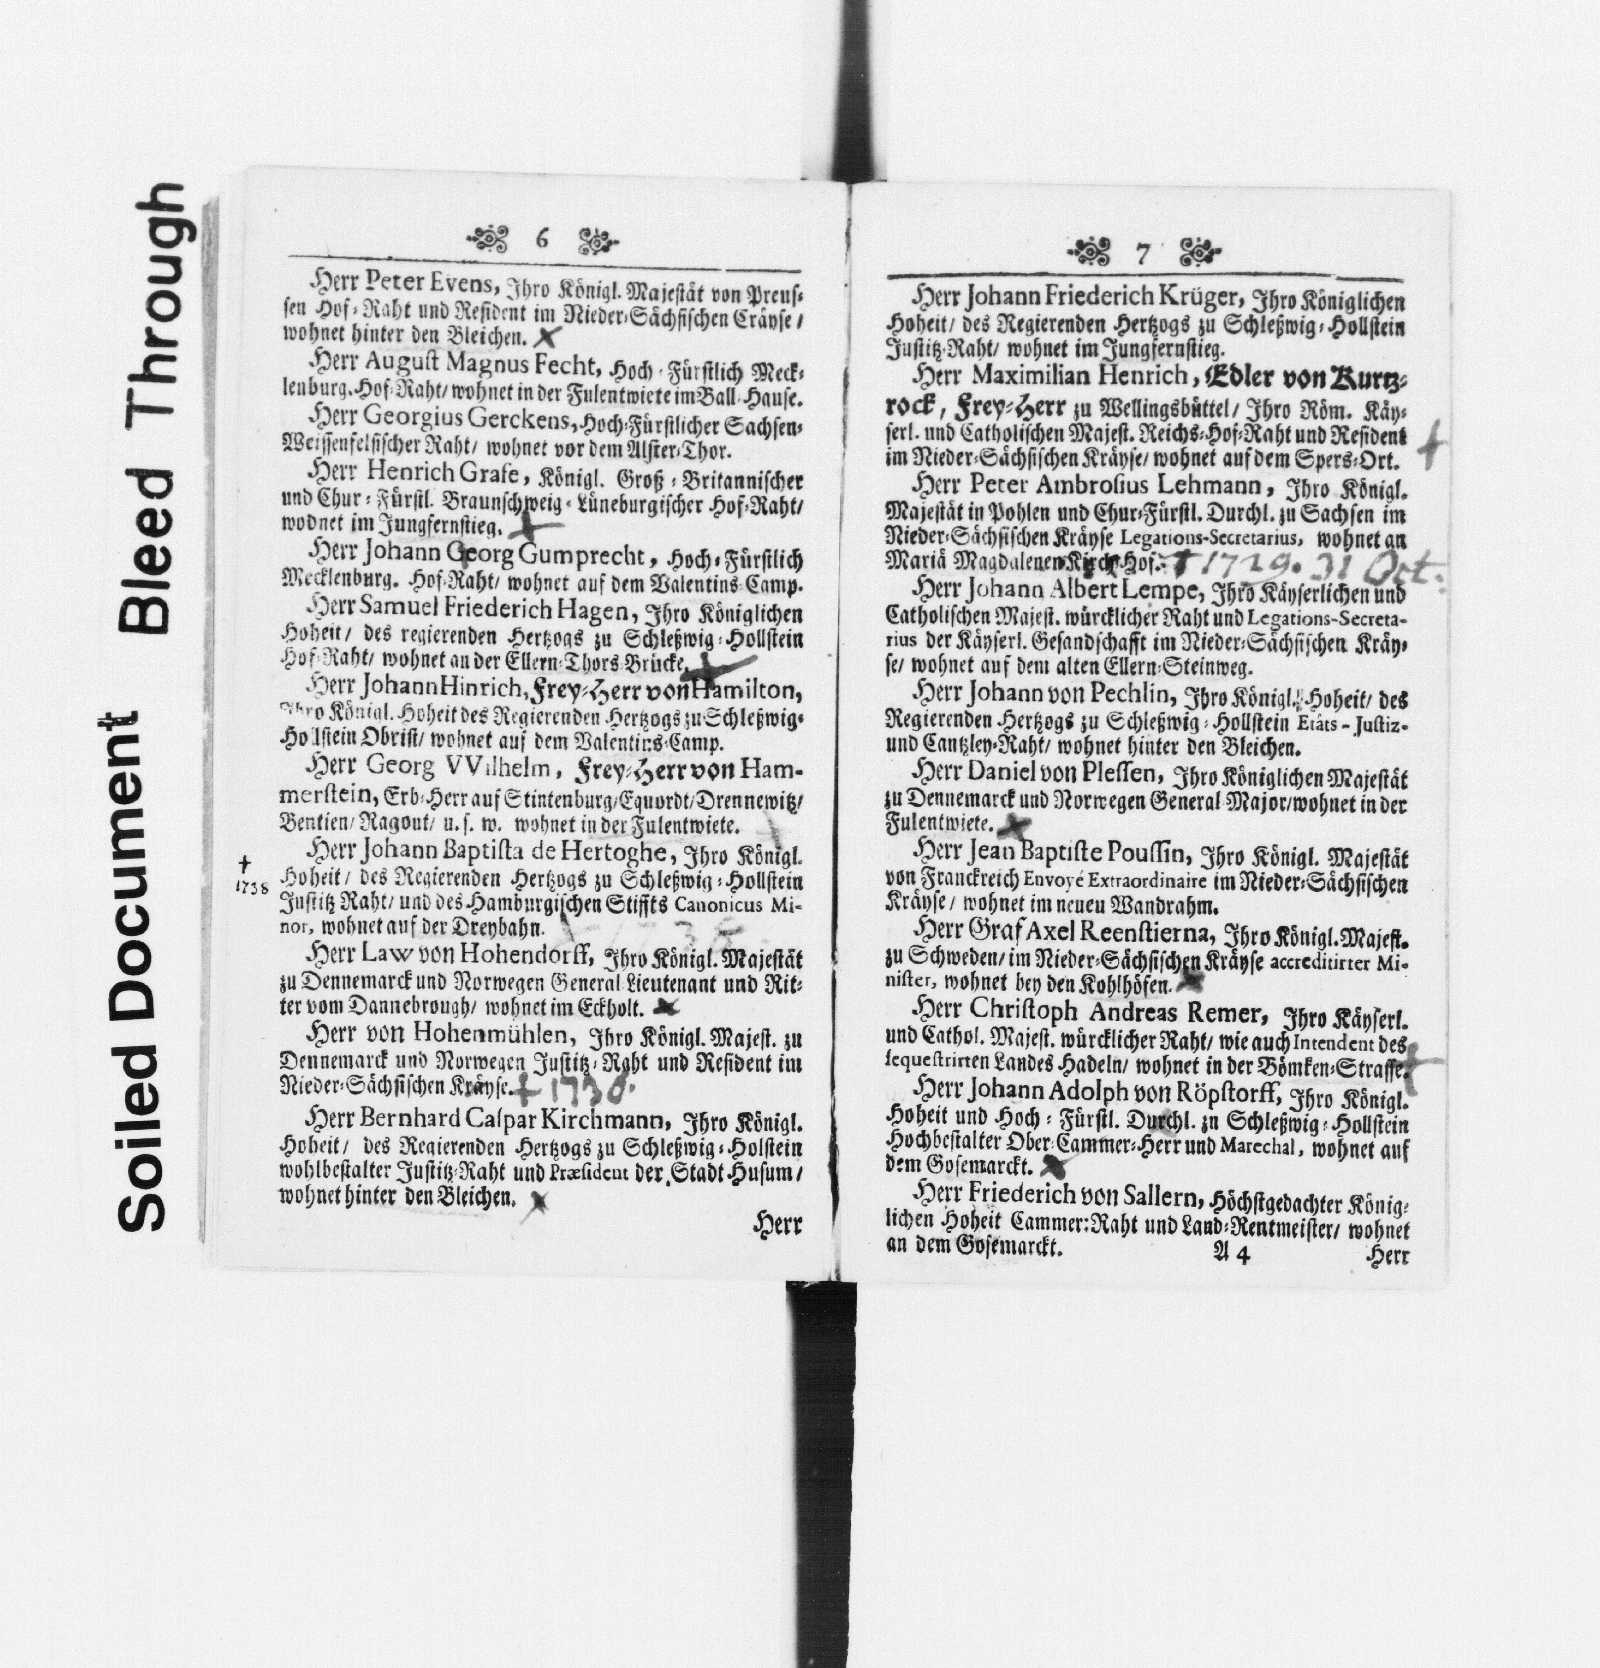 Soiled Document Bleed Through
6
Herr Peter Evens, Ihro Königl. Majestät von Preus-
sen Hof-Raht und Resident im Nieder-Sächsischen Cräyse/
wohnet hinter den Bleichen.
Herr August Magnus Fecht, Hoch-Fürstlich Meck-
lenburg. Hof-Raht/ wohnet in der Fulentwiete im Ball-Hause.
Herr Georgius Gerckens, Hoch-Fürstlicher Sachsen-
Weissenfelsischer Raht/ wohnet vor dem Alster-Thor.
Herr Henrich Grafe, Königl. Groß-Britannischer
und Chur-Fürstl. Braunschweig-Lüneburgischer Hof-Raht/
wodnet im Jungfernstieg.
Herr Johann Georg Gumprecht, Hoch-Fürstlich
Mecklenburg. Hof-Raht/ wohnet auf dem Valentins-Camp.
Herr Samuel Friederich Hagen, Ihro Königlichen
Hoheit/ des regierenden Hertzogs zu Schleßwig-Hollstein
Hof-Raht/ wohnet an der Ellern-Thors-Brücke.
Herr Johann Hinrich, Frey-Herr von Hamilton,
Ihro Königl. Hoheit des Regierenden Hertzogs zu Schleßwig-
Hollstein Obrist/ wohnet auf dem Valentins-Camp.
Herr Georg VVilhelm, Frey-Herr von Ham-
merstein, Erb-Herr auf Stintenburg/ Equordt/ Drennewitz/
Bentien/ Ragout/ u. s. w. wohnet in der Fulentwiete.
Herr Johann Baptista de Hertoghe, Ihro Königl.
† 1738
Hoheit/ des Regierenden Hertzogs zu Schleßwig-Hollstein
Justitz Raht/ und des Hamburgischen Stiffts Canonicus Mi-
nor, wohnet auf der Dreybahn.
Herr Law von Hohendorff, Ihro Königl. Majestät
zu Dennemarck und Norwegen General-Lieutenant und Rit-
ter vom Dannebrough/ wohnet im Eckholt.
Herr von Hohenmühlen, Ihro Königl. Majest. zu
Dennemarck und Norwegen Justitz-Raht und Resident im
Nieder-Sächsischen Kräyse. † 1738.
Herr Bernhard Caspar Kirchmann, Ihro Königl.
Hoheit/ des Regierenden Hertzogs zu Schleßwig-Holstein
wohlbestalter Justitz-Raht und Præsident der Stadt Husum/
wohnet hinter den Bleichen.
Herr
7
Herr Johann Friederich Krüger, Ihro Königlichen
Hoheit/ des Regierenden Hertzogs zu Schleßwig-Hollstein
Justitz-Raht/ wohnet im Jungfernstieg.
Herr Maximilian Henrich, Edler von Kurtz-
rock, Frey-Herr zu Wellingsbüttel/ Ihro Röm. Käy-
serl. und Catholischen Majest. Reichs-Hof-Raht und Resident
im Nieder-Sächsischen Kräyse/ wohnet auf dem Spers-Ort. †
Herr Peter Ambrosius Lehmann, Ihro Königl.
Majestät in Pohlen und Chur-Fürstl. Durchl. zu Sachsen im
Nieder-Sächsischen Kräyse Legations-Secretarius, wohnet an
Mariä Magdalenen Kirch-Hof. † 1729. 31 Oct.
Herr Johann Albert Lempe, Ihro Käyserlichen und
Catholischen Majest. würcklicher Raht und Legations-Secreta-
rius der Käyserl. Gesandschafft im Nieder-Sächsischen Kräy-
se/ wohnet auf dem alten Ellern-Steinweg.
Herr Johann von Pechlin, Ihro Königl. Hoheit/ des
Regierenden Hertzogs zu Schleßwig-Hollstein Etâts-Justiz-
und Cantzley-Raht/ wohnet hinter den Bleichen.
Herr Daniel von Plessen, Ihro Königlichen Majestät
zu Dennemarck und Norwegen General-Major/ wohnet in der
Fulentwiete.
Herr Jean Baptiste Poussin, Ihro Königl. Majestät
von Franckreich Envoyé Extraordinaire im Nieder-Sächsischen
Kräyse/ wohnet im neuen Wandrahm.
Herr Graf Axel Reenstierna, Ihro Königl. Majest.
zu Schweden/ im Nieder-Sächsischen Kräyse accreditirter Mi-
nister, wohnet bey den Kohlhöfen.
Herr Christoph Andreas Remer, Ihro Käyserl.
und Cathol. Majest. würcklicher Raht/ wie auch Intendent des
sequestrirten Landes Hadeln/ wohnet in der Bömken-Strasse. †
Herr Johann Adolph von Röpstorff, Ihro Königl.
Hoheit und Hoch-Fürstl. Durchl. zu Schleßwig-Hollstein
Hochbestalter Ober-Cammer-Herr und Marechal, wohnet auf
dem Gosemarckt.
Herr Friederich von Sallern, Höchstgedachter König-
lichen Hoheit Cammer-Raht und Land-Rentmeister/ wohnet
an dem Gosemarckt.
A 4 Herr